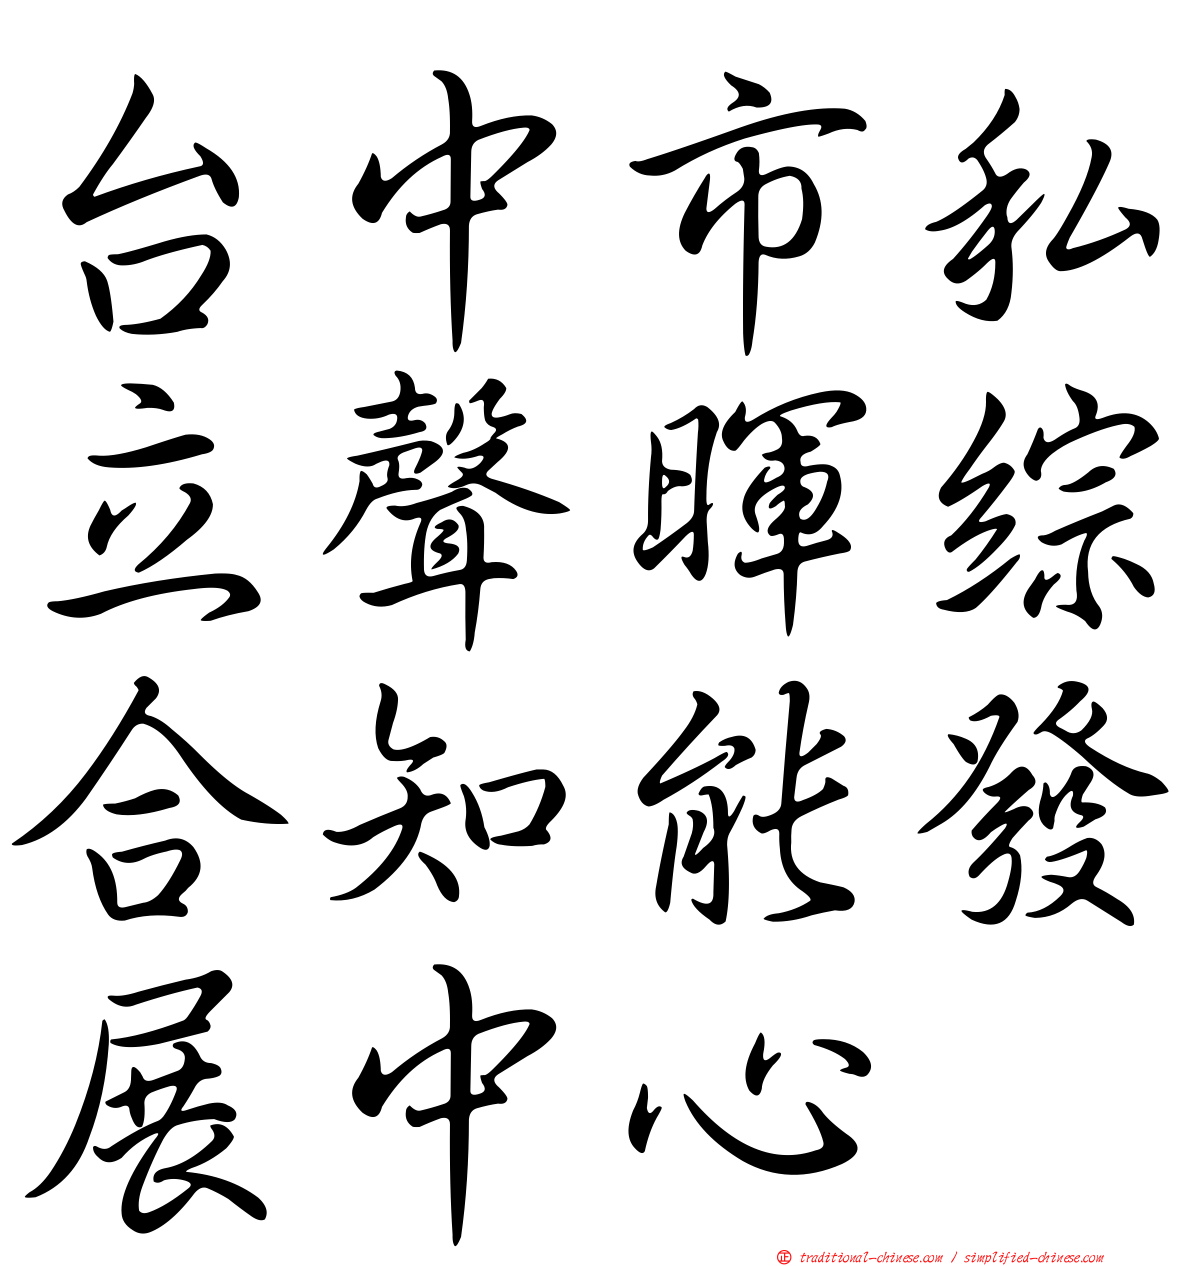 台中市私
立聲暉綜
合知能發
展中心
正 traditional-chinese.com / simplified-chinese.com